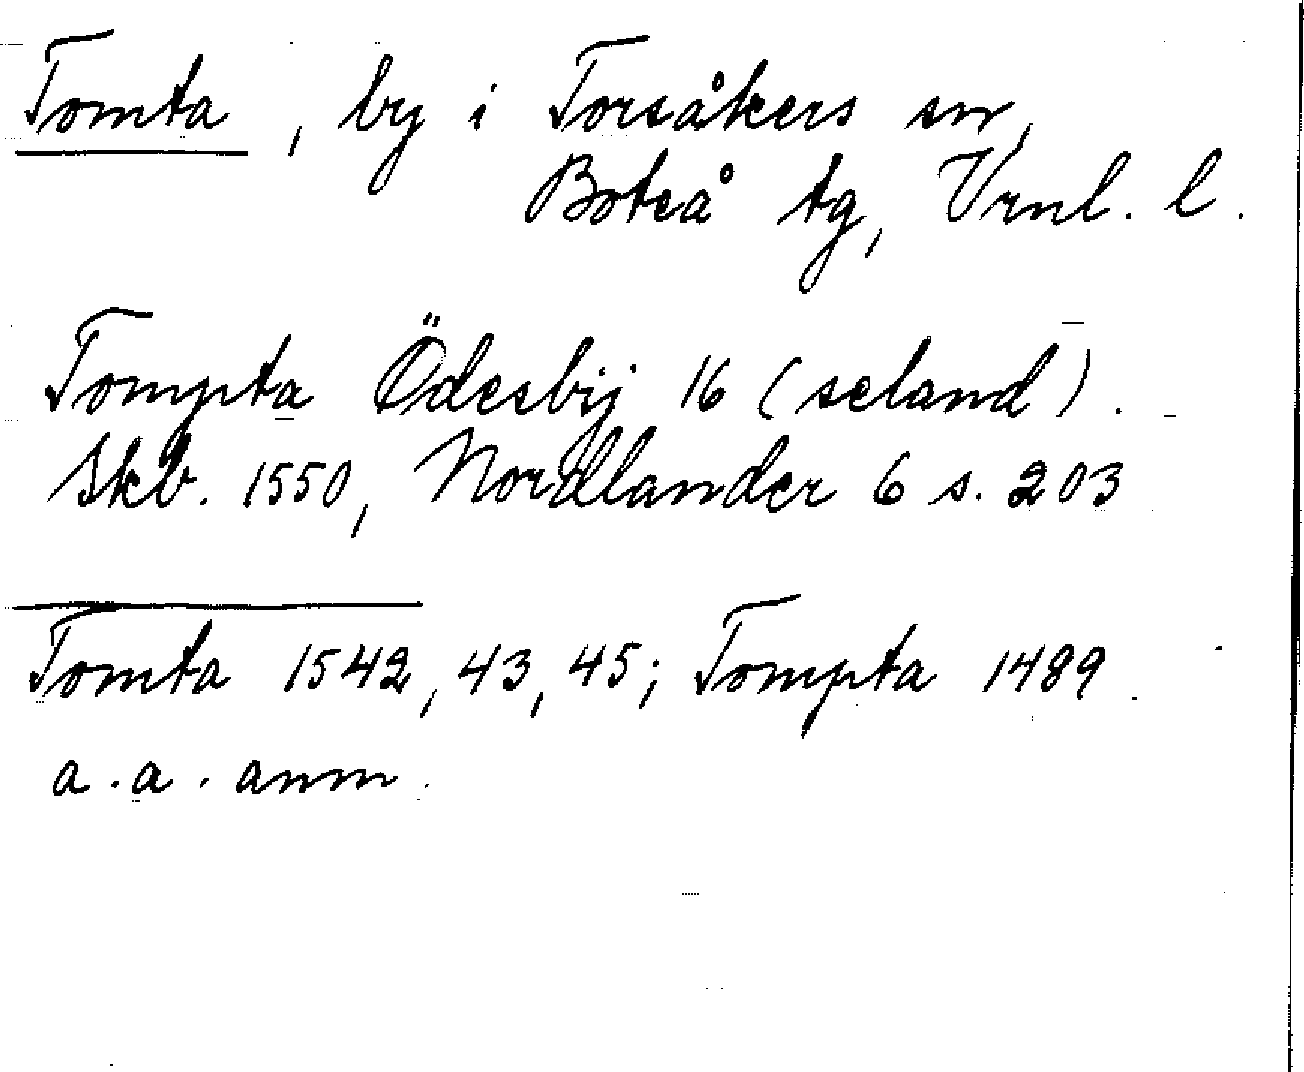 Tomta, by i Torsåkers sn,
Boteå tg, Vrnl. l.
Tompta Ödesbÿ 16 (seland).
Skb. 1550, Nordlander 6 s. 203
Tomta 1542, 43, 45; Tompta 1489
a. a. anm.